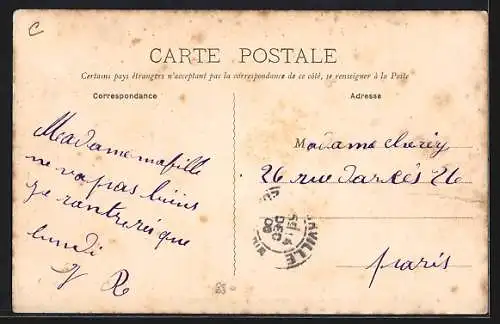 C
CARTE POSTALE
Certains pays étrangers n'acceptant pas la correspondance de ce côté, se renseigner à la Poste
Correspondance
Adresse
Madame ma fille
ne va pas biens
je rentrerè que
lundi
V R
Madame
26 rue darcès 26
paris
DEC
88